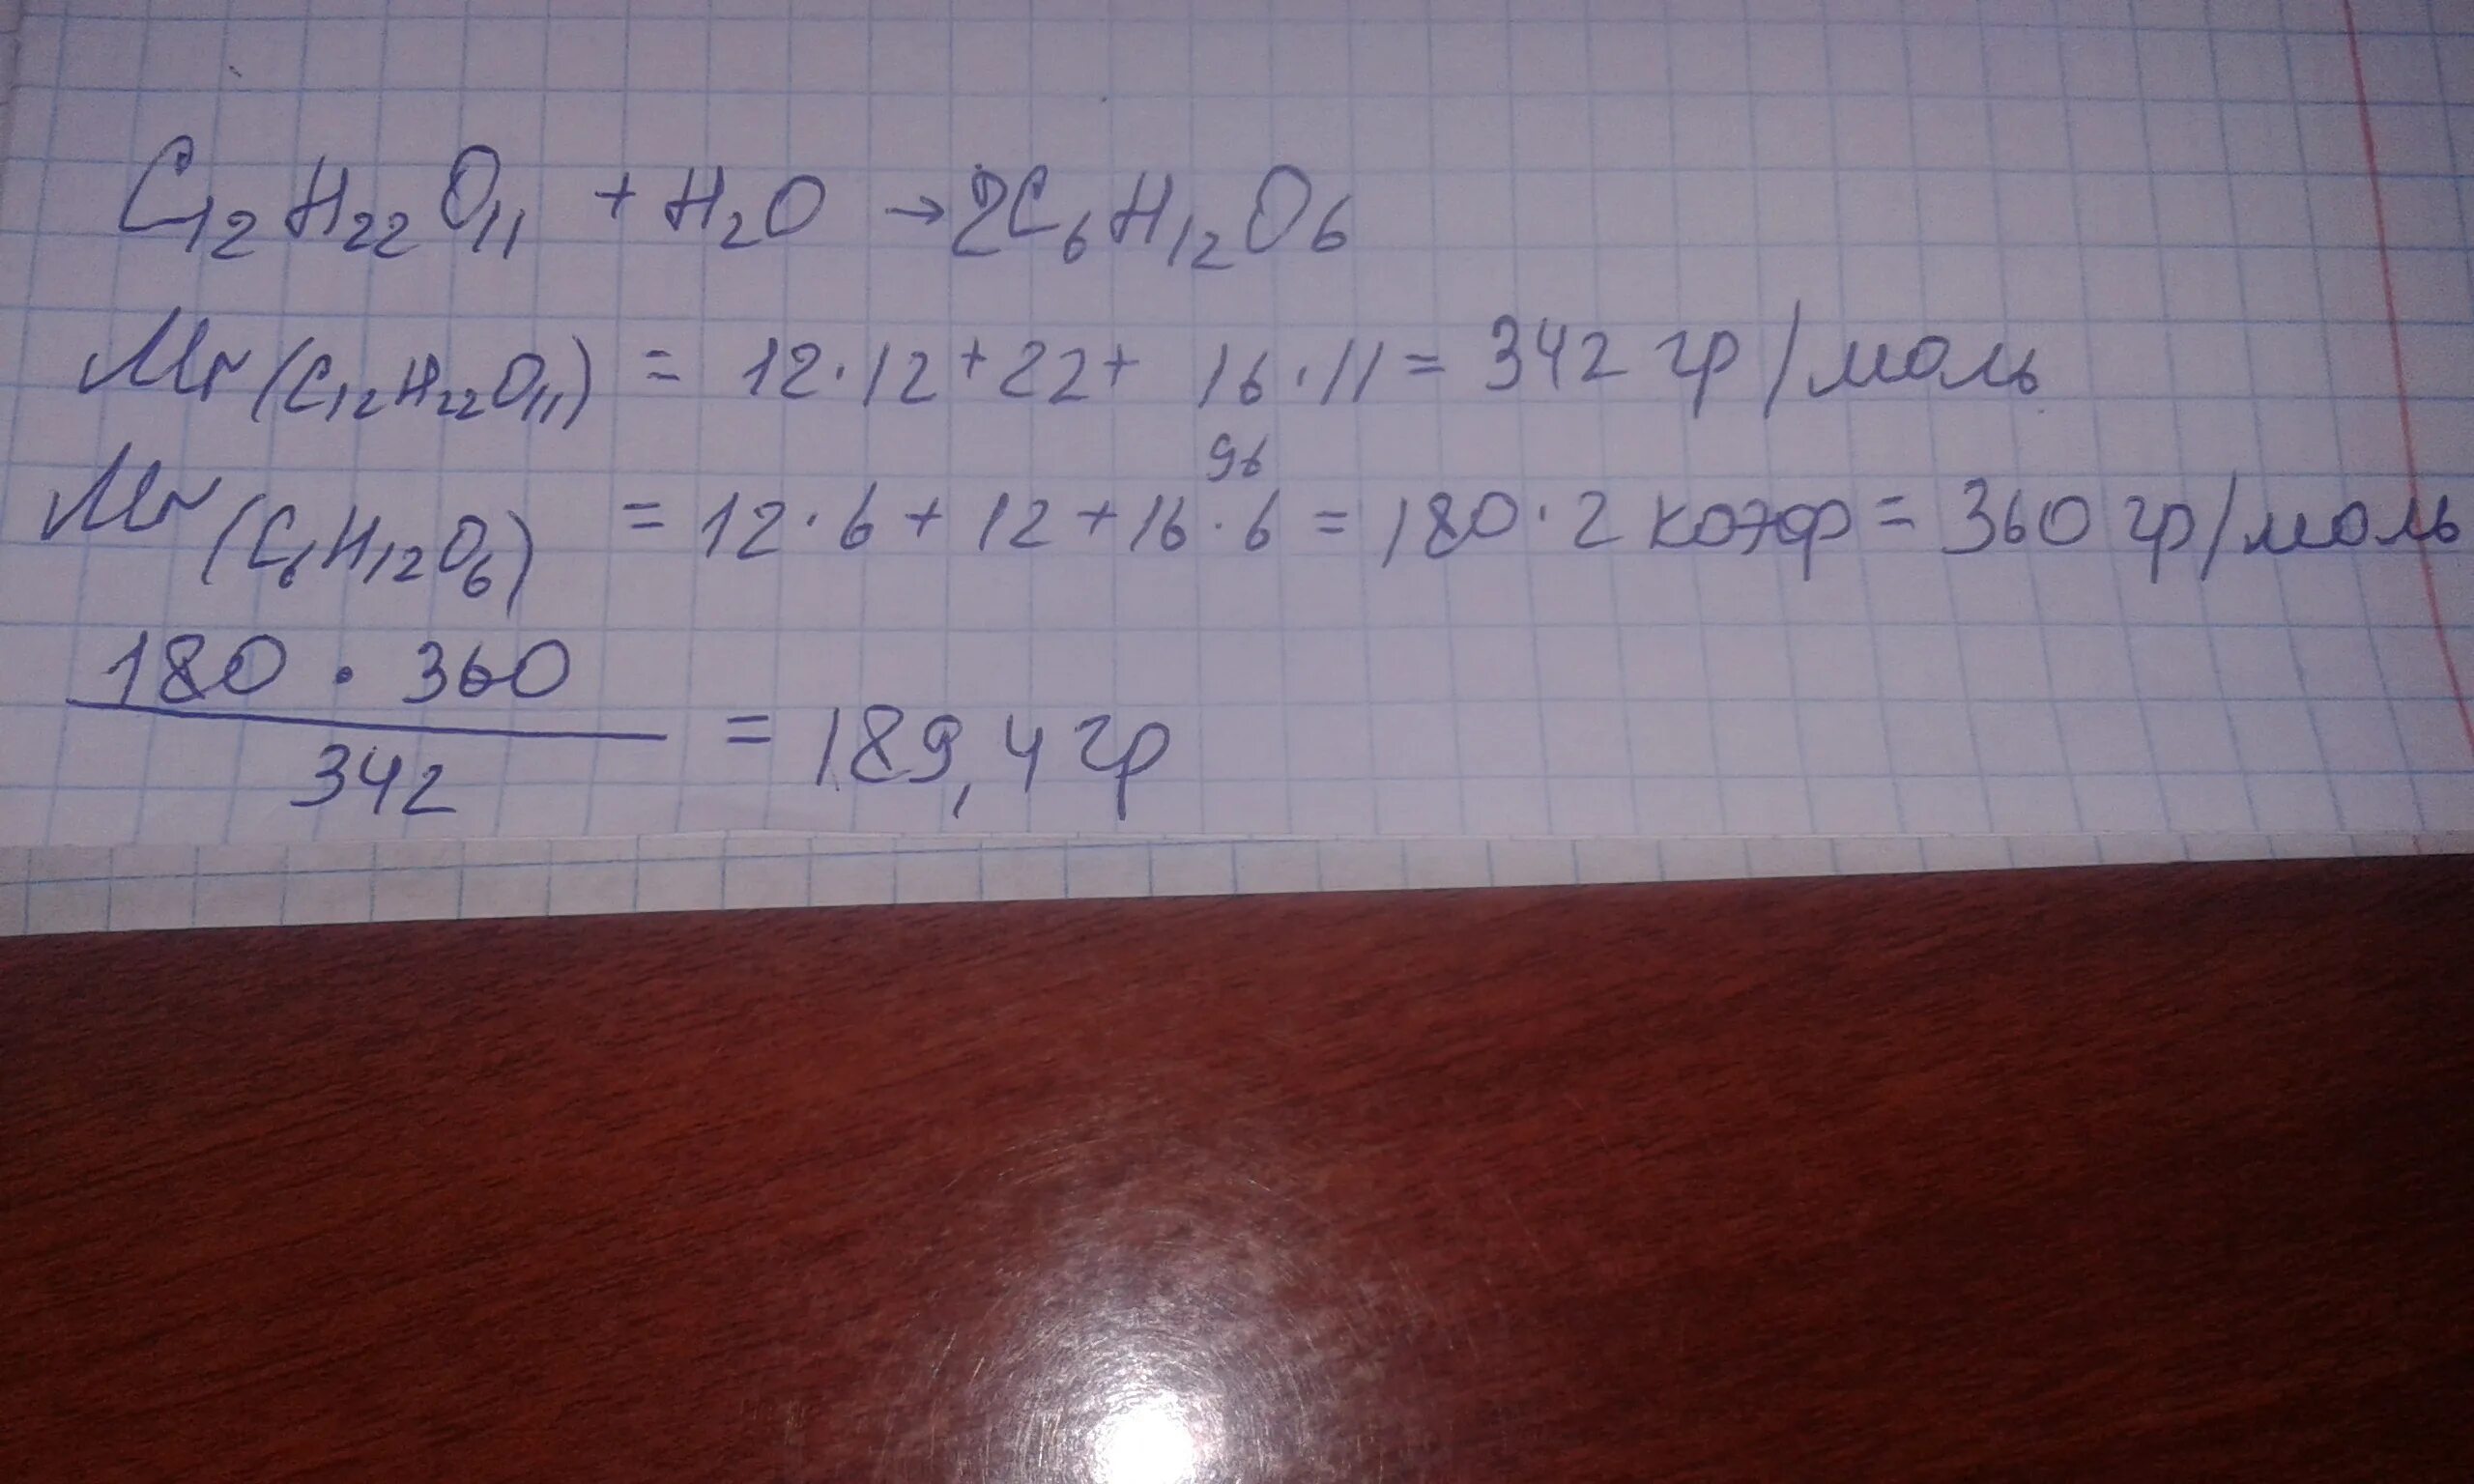 C₁₂H₂₂O₁₁ + H₂O → 2C₆H₁₂O₆
Mr(C₁₂H₂₂O₁₁) = 12·12+22+ 16·11= 342 гр/моль
96
Mr(C₆H₁₂O₆) = 12·6+12+16·6=180·2 коэф=360гр/моль
180 · 360
342
= 189,4гр